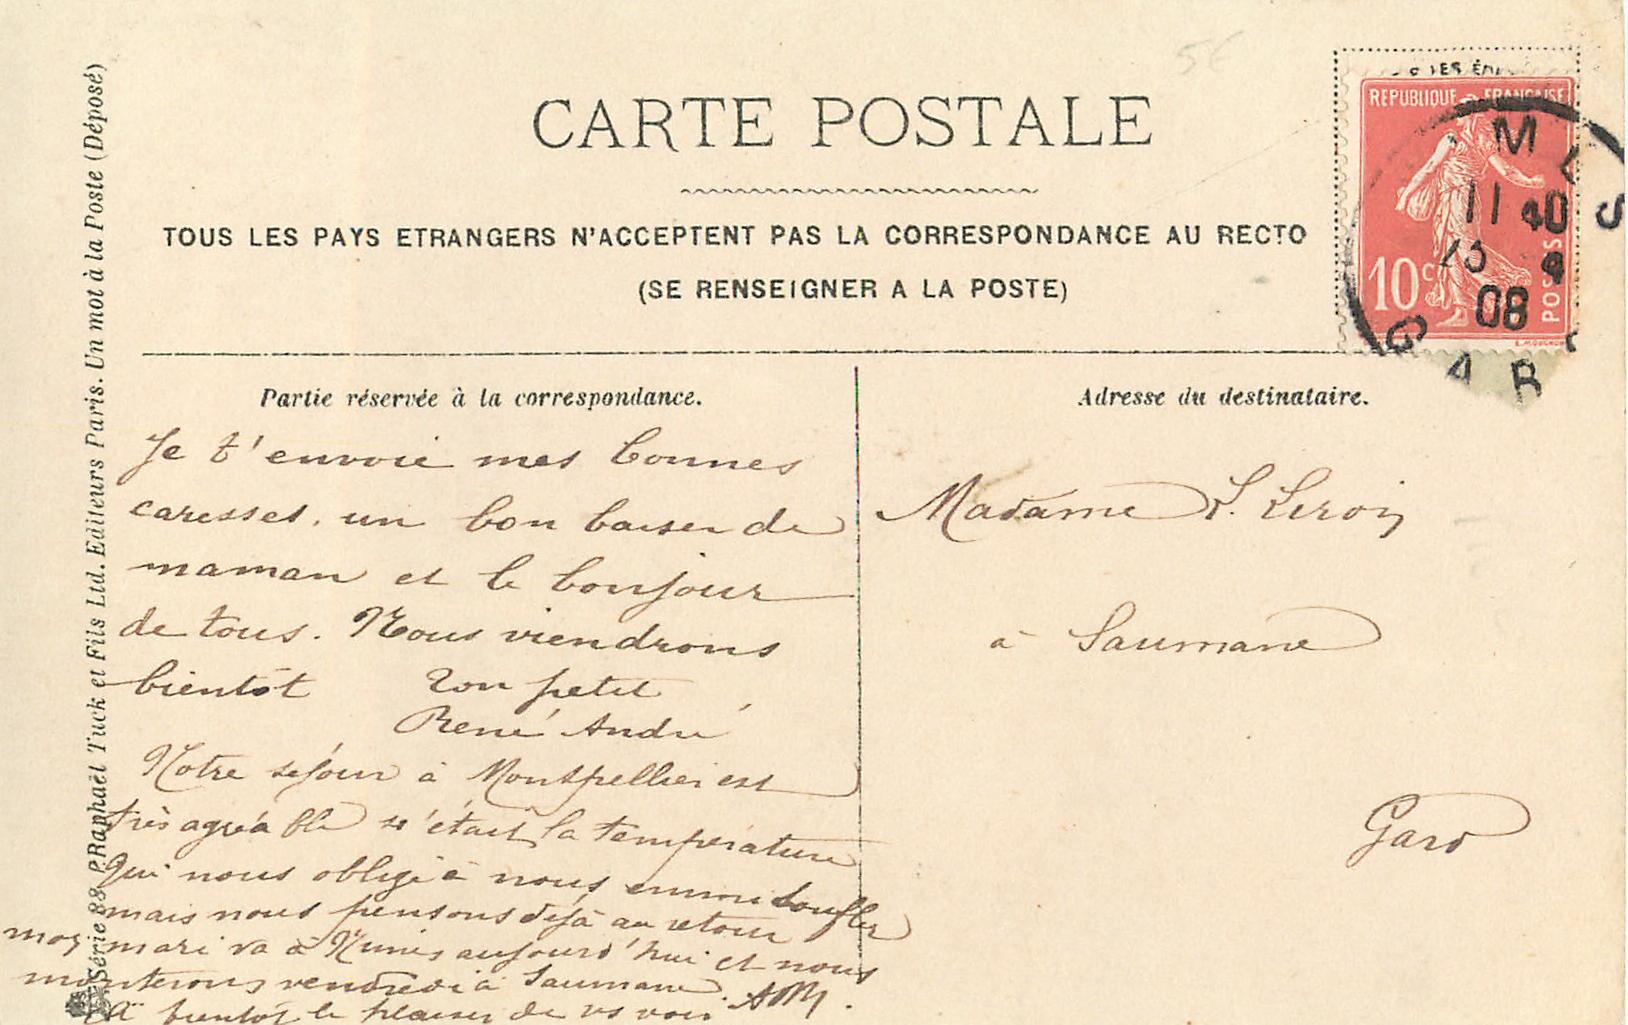 5€
CARTE POSTALE
TOUS LES PAYS ETRANGERS N'ACCEPTENT PAS LA CORRESPONDANCE AU RECTO
(SE RENSEIGNER A LA POSTE)
REPUBLIQUE FRANÇAISE
10c
POSTES
E. MOUCHON
11 40
08
GAR
Série 88 P. Raphaël Tuck et Fils Ltd. Editeurs Paris. Un mot à la Poste (Déposé)
Partie réservée à la correspondance.
Je t'envoie mes bonnes
caresses, un bon baiser de
maman et le bonjour
de tous. Nous viendrons
bientôt Ton petit
René André
Notre séjour à Montpellier est
très agréable n'était la température
qui nous oblige à nous emmitoufler
mais nous pensons déjà au retour
mon mari va à Nimes aujourd'hui et nous
monterons vendredi à Saumane
à bientôt le plaisir de vs voir.
Adresse du destinataire.
Madame L. Leroy
à Saumane
Gard